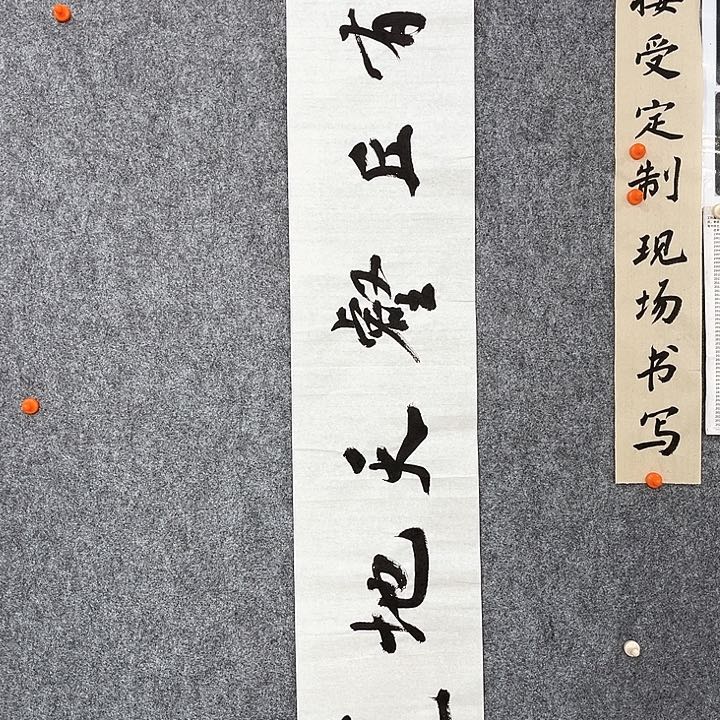 有丘壑天地
受定制现场书写